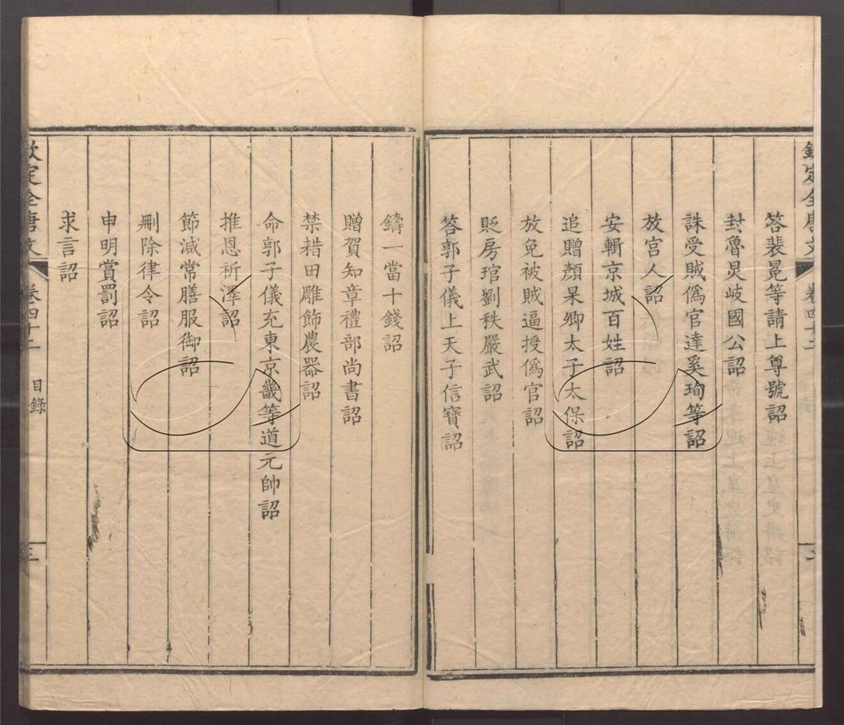 欽定全唐文 卷四十二
答裴冕等請上尊號詔
封魯炅岐國公詔
誅受賊僞官達奚珣等詔
放宮人詔
安輯京城百姓詔
追贈顏杲卿太子太保詔
放免被賊逼授僞官詔
貶房琯劉秩嚴武詔
答郭子儀上天子信寶詔
鑄一當十錢詔
贈賀知章禮部尚書詔
禁耤田雕飾農器詔
命郭子儀充東京畿等道元帥詔
推恩祈澤詔
節減常膳服御詔
刪除律令詔
申明賞罰詔
求言詔
欽定全唐文 卷四十二 目錄 三